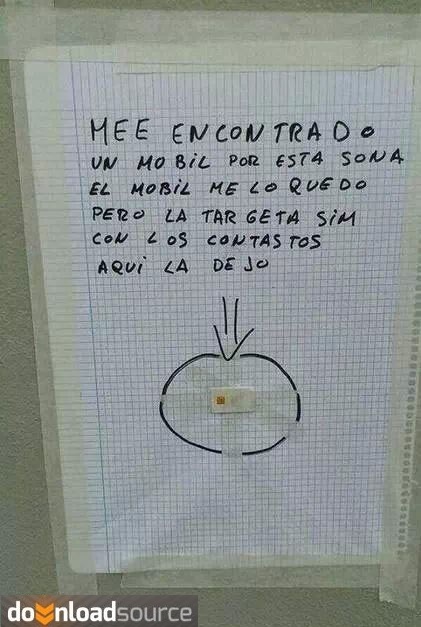 MEE ENCONTRADO
UN MOBIL POR ESTA SONA
EL MOBIL ME LO QUEDO
PERO LA TARGETA SIM
CON LOS CONTASTOS
AQUI LA DEJO
downloadsource